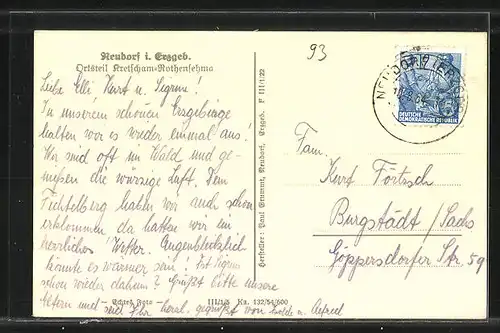 Neudorf i. Erzgeb.
Ortsteil Kretscham-Rothensehma
Liebe Elli Kurt u. Sigrun!
In unserem schönen Erzgebirge
halten wir es wieder einmal aus!
Wir sind oft im Wald und ge-
nießen die würzige Luft. Den
Fichtelberg haben wir auch schon
erklommen da hatten wir ein
herrliches Wetter. Augenblicklich
könnte es wärmer sein! Ist Sigrun
schon wieder daham? Grüßt bitte unsere
Eltern und seid Ihr herzl. gegrüßt von und Alfred
Echt Foto III/1/5 Ka. 132/54/500
Hersteller: Paul Grummt, Neudorf, Erzgeb. F III/1/22
93
NEUDORF (ERZGEB)
DEUTSCHE
DEMOKRATISCHE REPUBLIK
Fam.
Kurt Förtzsch
Burgstädt/Sachs
Göppersdorfer Str. 59